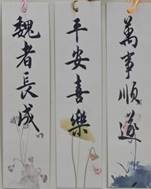 萬事順遂
平安喜樂
魏者長成